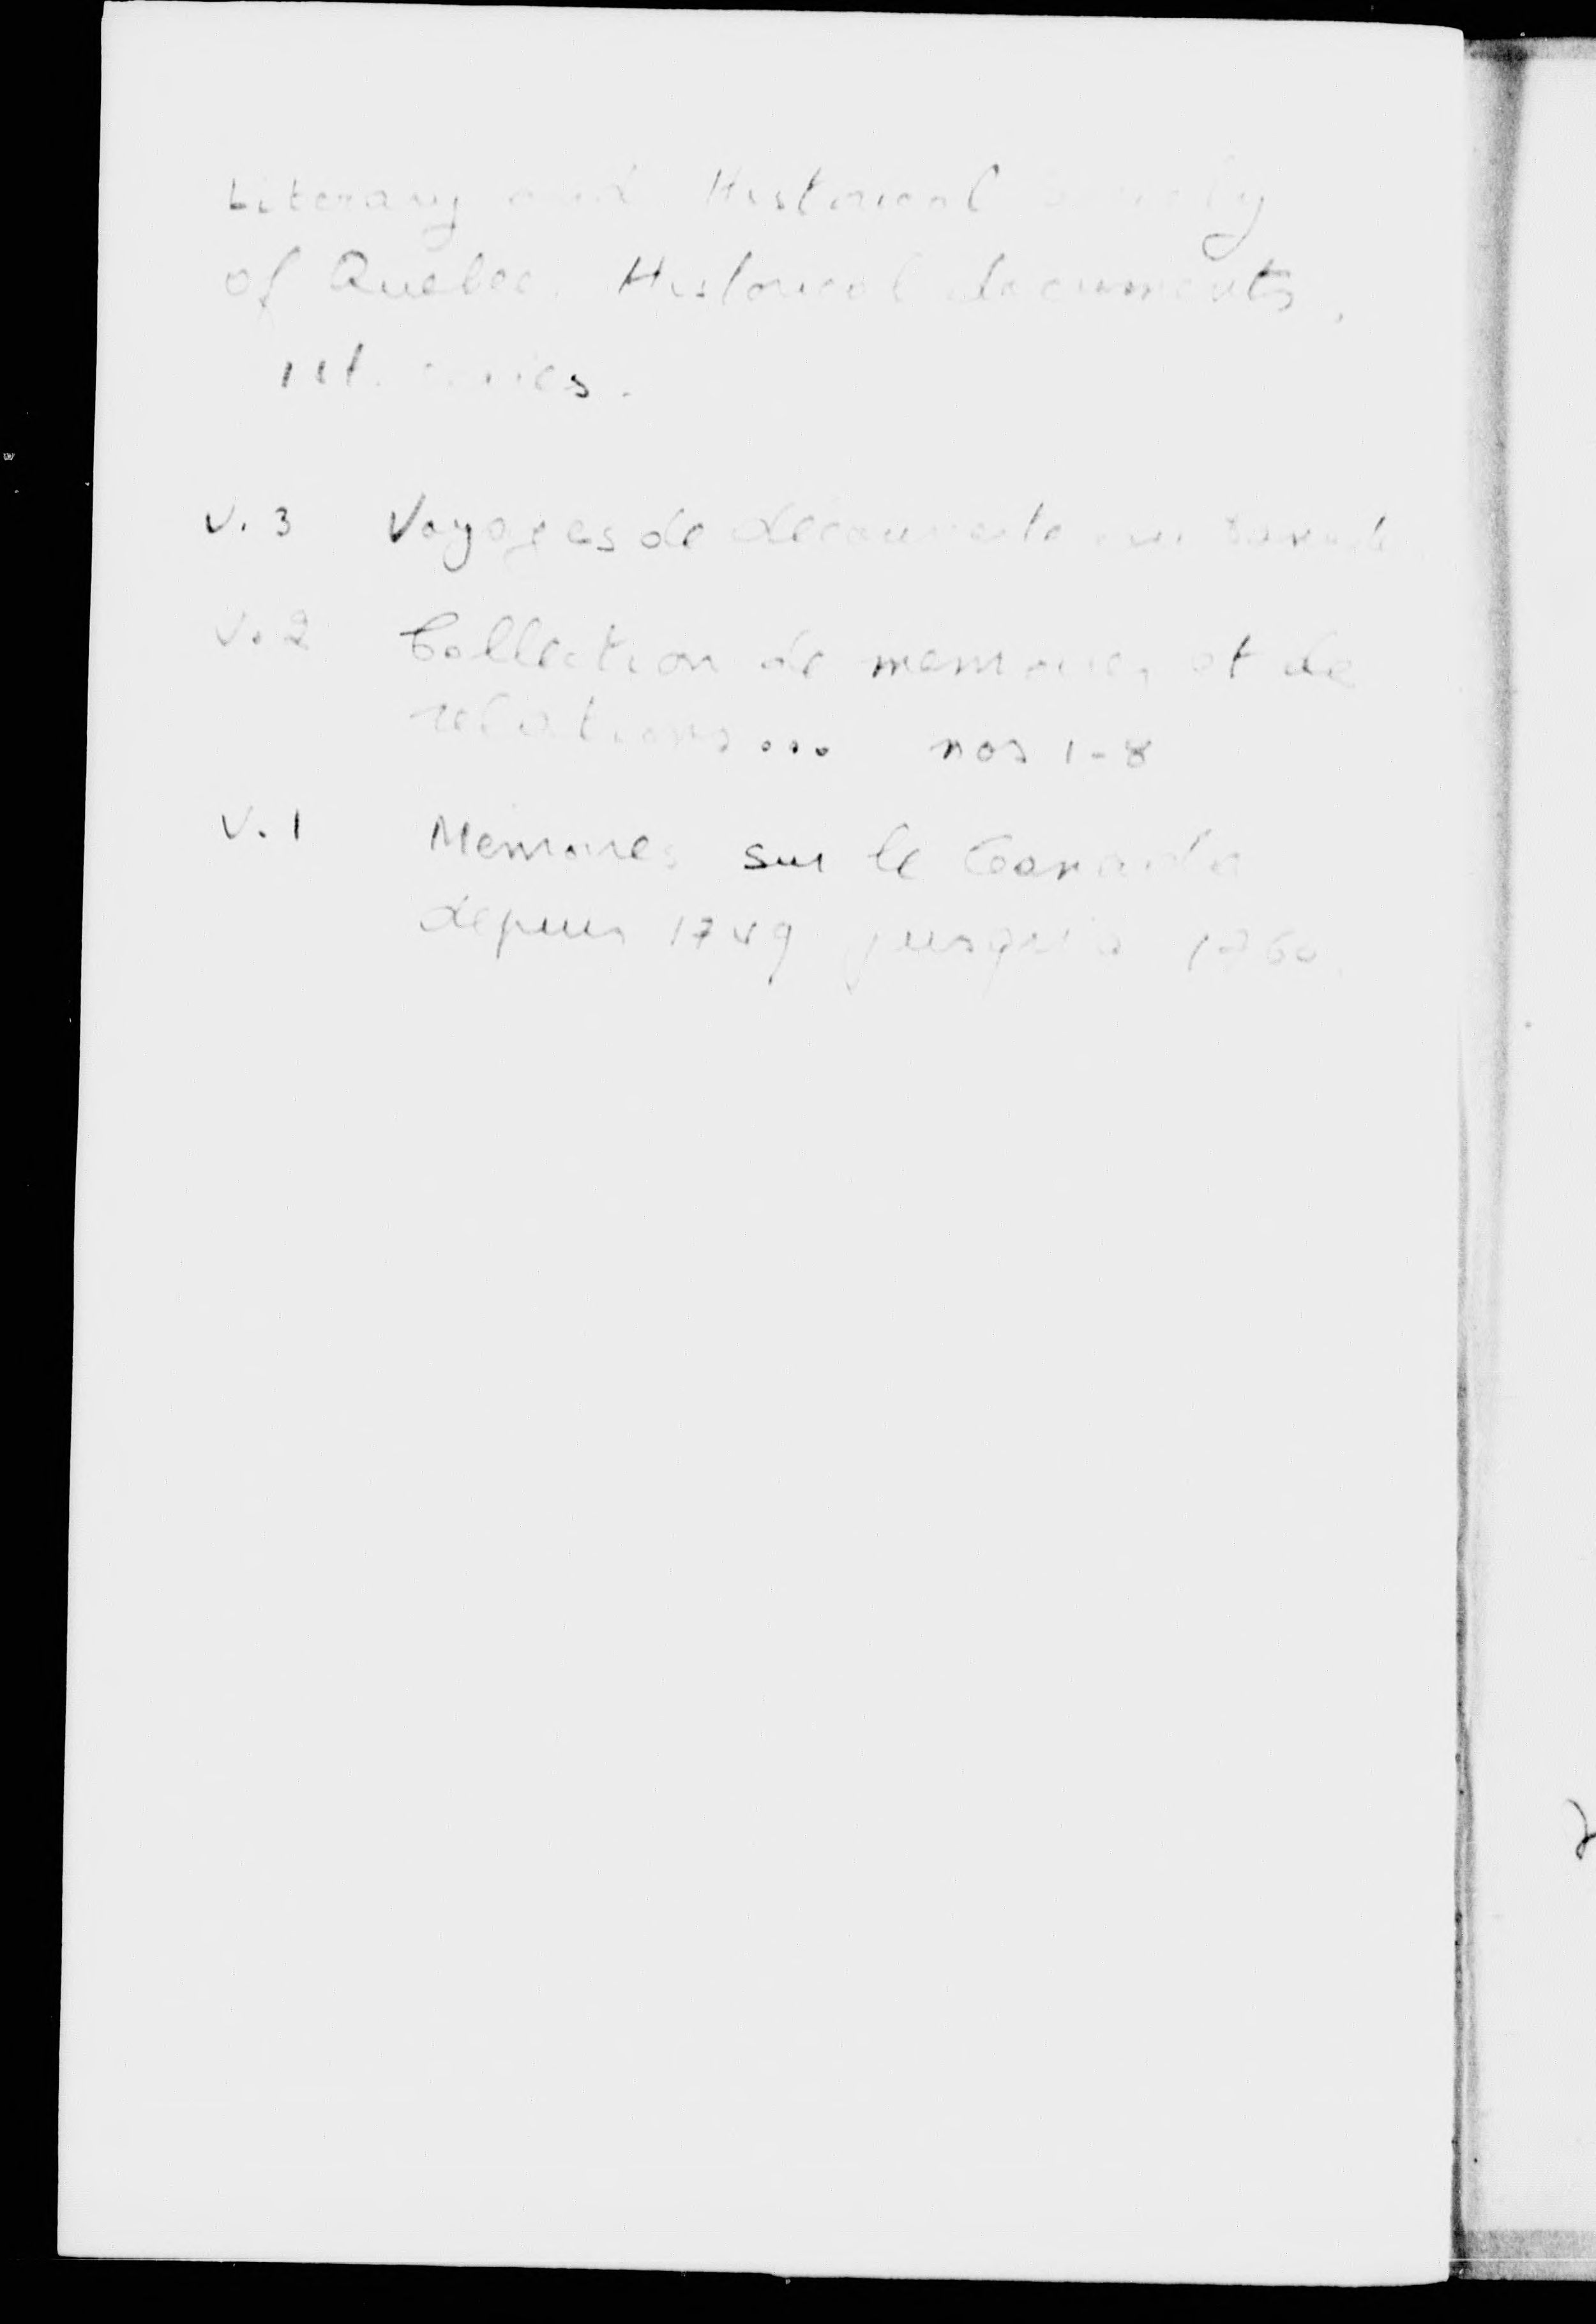 Literary and Historical Society
of Quebec. Historical documents,
1st. series.
V. 3 Voyages de decouverte au Canada
V. 2 Collection de memoires et de
relations... nos 1-8
V. 1 Memoires sur le Canada
depuis 1749 jusqu'a 1760.